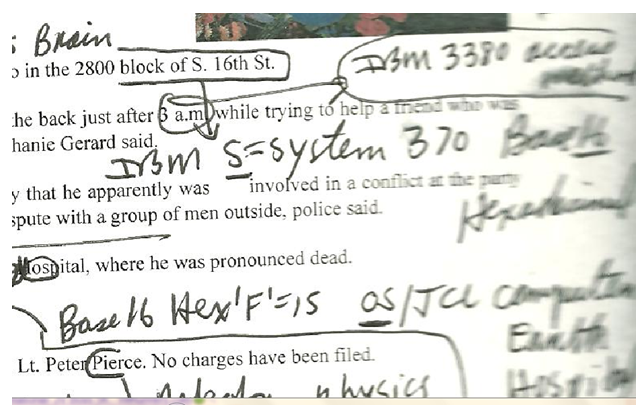 Brain
o in the 2800 block of S. 16th St.
IBM 3380 access
he back just after 3 a.m. while trying to help a friend who was
hanie Gerard said.
IBM S=System 370 Base 16
y that he apparently was involved in a conflict at the party
spute with a group of men outside, police said.
Hexadecimal
Hospital, where he was pronounced dead.
Base 16 Hex'F'=15 OS/JCL Computer
Earth
Lt. Peter Pierce. No charges have been filed.
physics Hospital